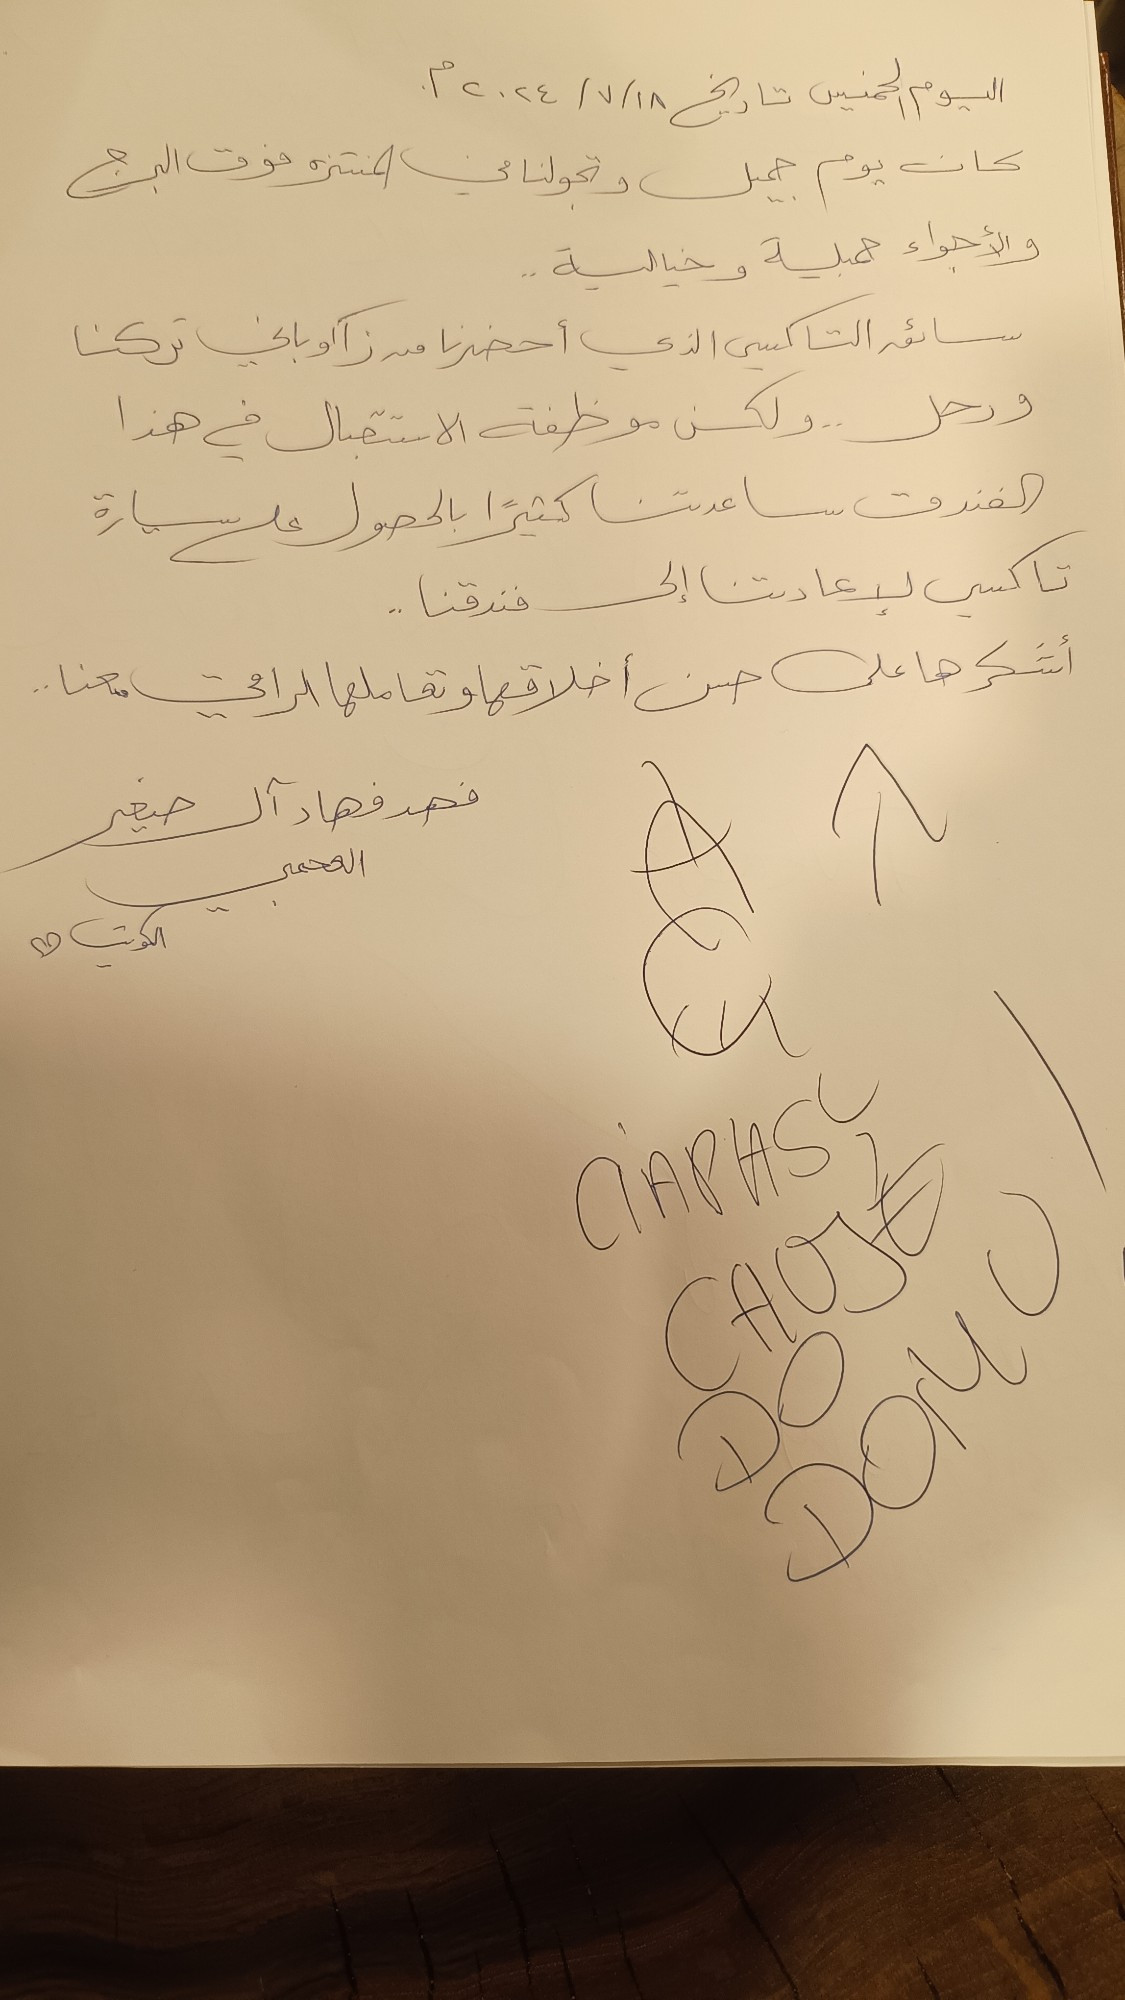 اليوم الخميس تاريخ ١٨/٧/٢٠٢٤م.
كان يوم جميل وتجولنا في المنتزه فوق البرج
والأجواء جميلة وخيالية ..
سائق التاكسي الذي أحضرنا من زاكوباني تركنا
ورحل .. ولكن موظفة الاستقبال في هذا
الفندق ساعدتنا كثيرًا بالحصول على سيارة
تاكسي لإعادتنا إلى فندقنا ..
أشكرها على حسن أخلاقها وتعاملها الراقي معنا ..
فهد فهاد آل صغير
العجمي
الكويت
DO
DOMU